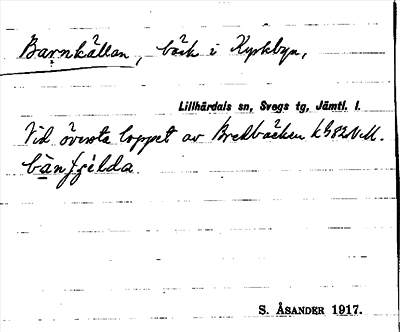 Barnkällan, bäck i Kyrkbyn,
Lillhärdals sn, Svegs tg, Jämtl. l.
Vid översta loppet av Bredbäcken
S. ÅSANDER 1917.